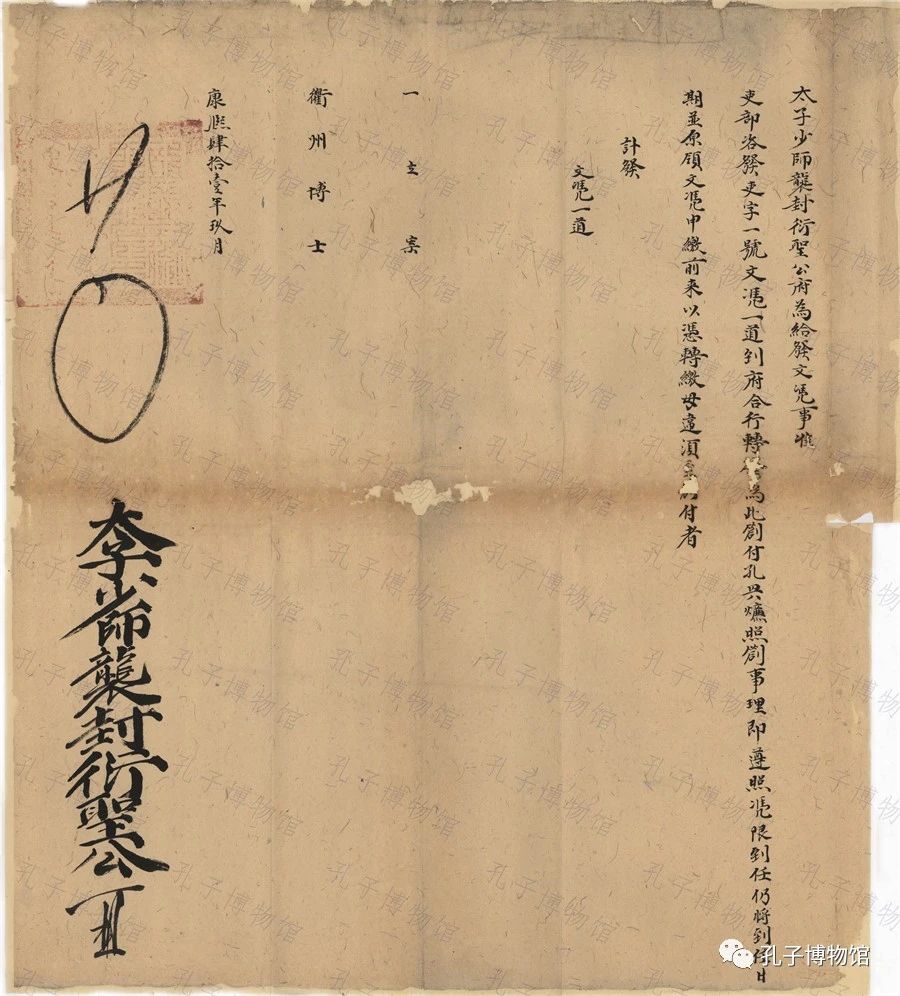 太子少師襲封衍聖公府為給發文憑事准
吏部咨發吏字一號文憑一道到府合行轉發為此劄付孔興燫照劄事理即遵照憑限到任仍將到任日
期並原領文憑申繳前来以憑轉繳毋違須至劄付者
計發
文憑一道
一立案
衢州博士
康熙肆拾壹年玖月
太子少師襲封衍聖公
孔子博物馆